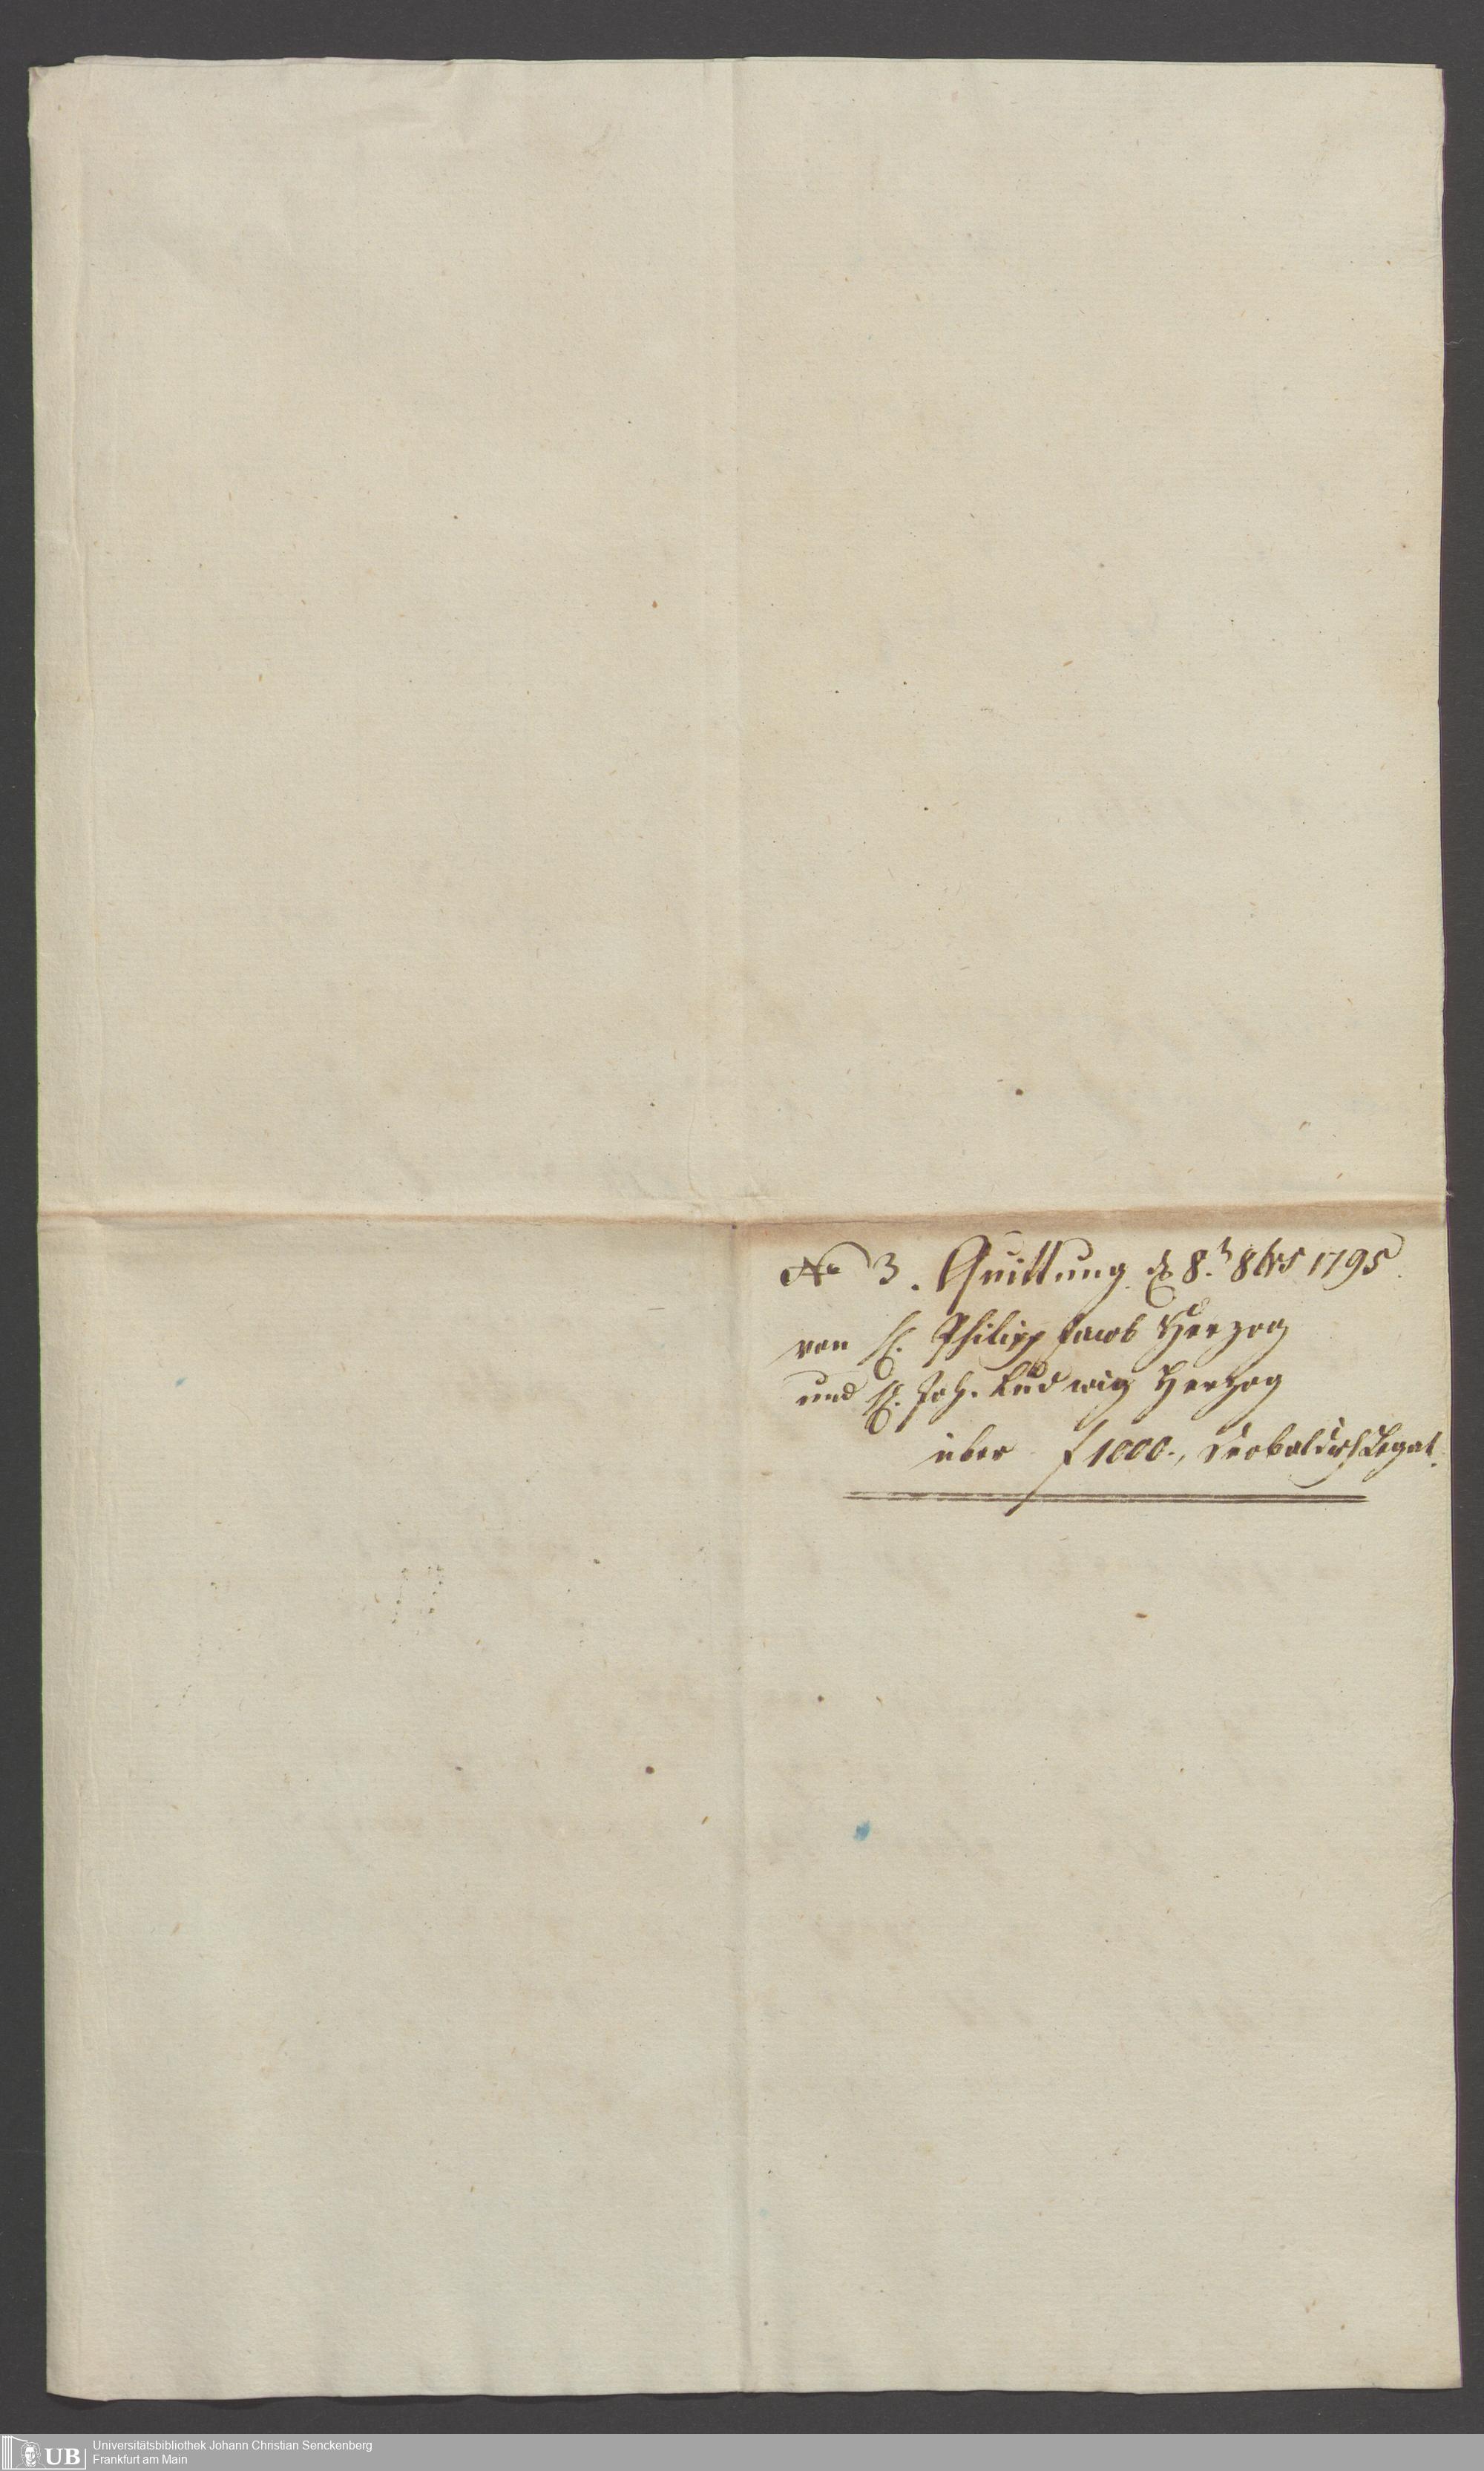 No 3. Quittung d 8.t 8brs 1795.
von H. Philipp Jacob Herzog
und H. Joh. Ludwig Herzog
über f 1000.,  Legat.
UB Universitätsbibliothek Johann Christian Senckenberg
Frankfurt am Main